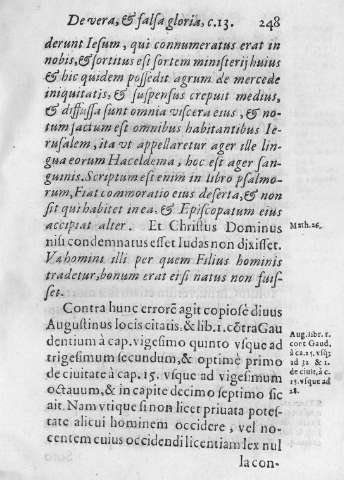 De vera, & falsa gloria, c.13. 248
derunt Iesum, qui connumeratus erat in
nobis, & sortitus est sortem ministerij huius
& hic quidem possedit agrum de mercede
iniquitatis, & suspensus crepuit medius,
& diffussa sunt omnia viscera eius, & no-
tum factum est omnibus habitantibus Ie-
rusalem, ita vt appellaretur ager ille lin
gua eorum Haceldema, hoc est ager san-
guinis. Scriptum est enim in libro psalmo-
rum, Fiat commoratio eius deserta, & non
sit qui habitet in ea, & Episcopatum eius
accipiat alter. Et Christus Dominus
nisi condemnatus esset Iudas non dixisset.
Væ homini illi per quem Filius hominis
tradetur, bonum erat ei si natus non fuis-
set.
Math. 26.
Contra hunc errorẽ agit copiosè diuus
Augustinus locis citatis. & lib. 1. cõtra Gau
dentium à cap. vigesimo quinto vsque ad
trigesimum secundum, & optimè primo
de ciuitate à cap. 15. vsque ad vigesimum
octauum, & in capite decimo septimo sic
ait. Nam vtique si non licet priuata potes-
tate alicui hominem occidere, vel no-
centem cuius occidendi licentiam lex nul
la con-
Aug. libr. 1.
cont Gaud,
à ca. 25. vsq;
ad 32 & 1.
de ciuit, à c.
15. vsque ad
28.